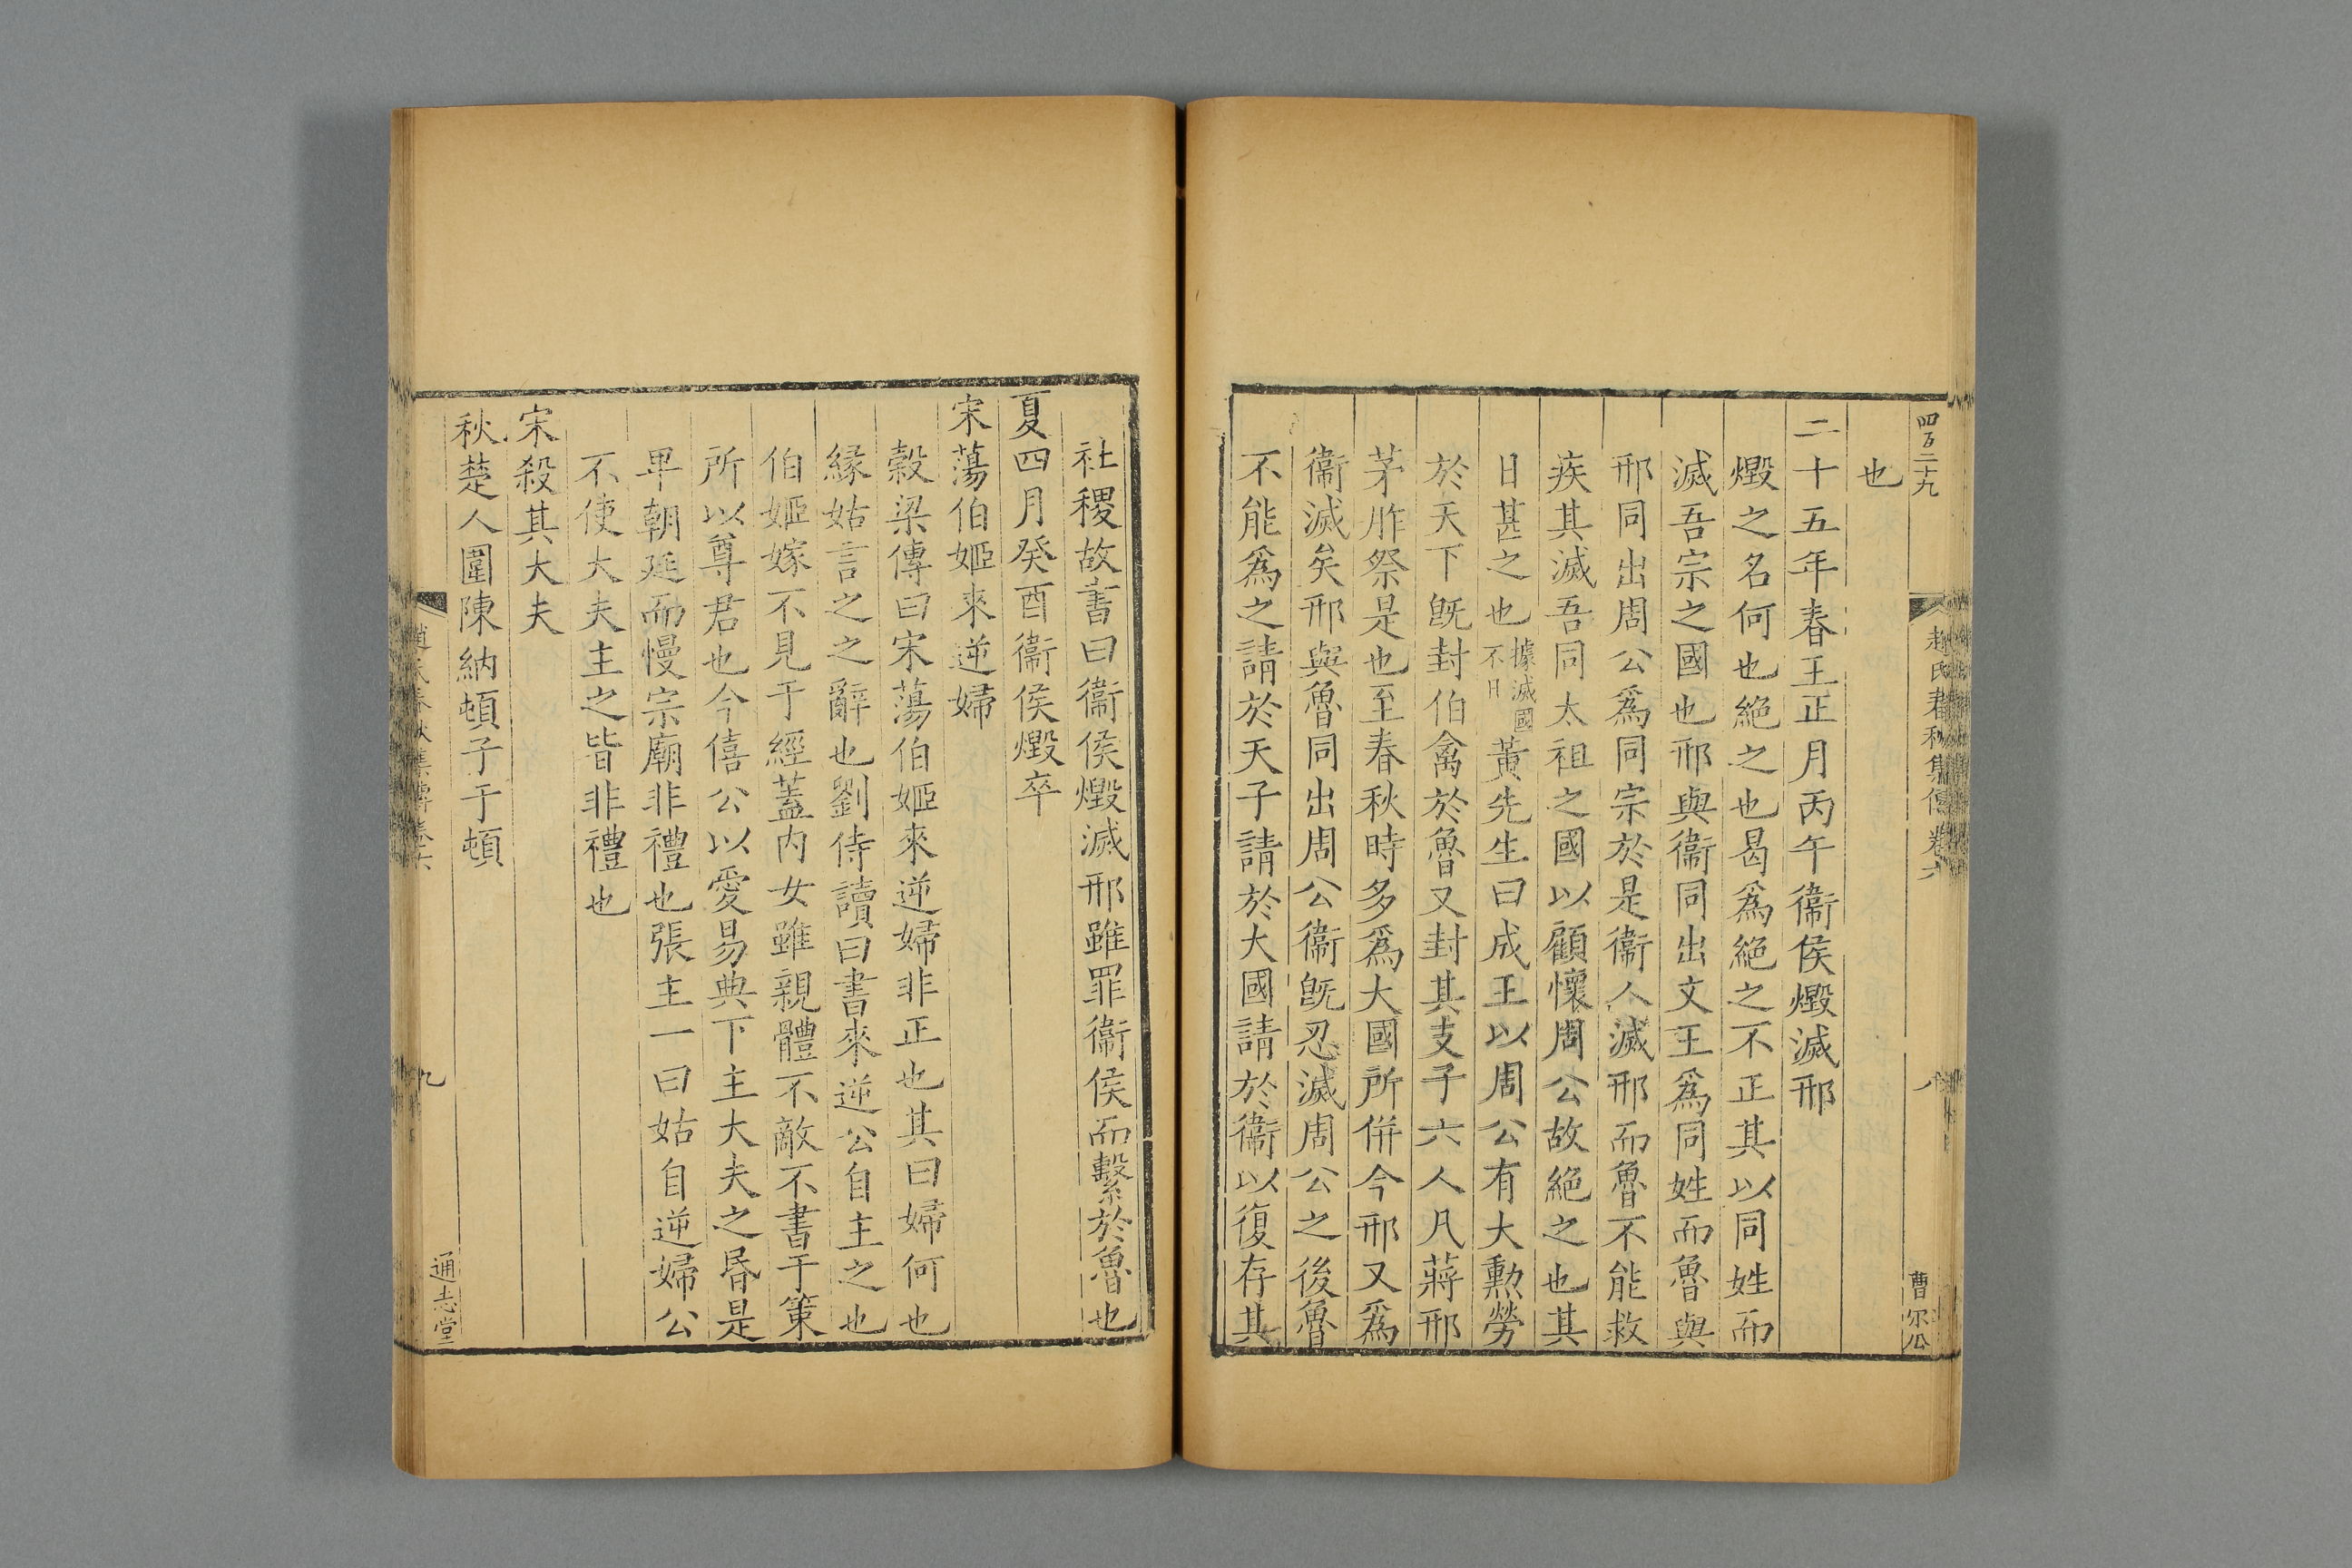 四百二十九
趙氏春秋集傳卷六
八
曹尔公
也
二十五年春王正月丙午衞侯燬滅邢
燬之名何也絶之也曷爲絶之不正其以同姓而
滅吾宗之國也邢與衞同出文王爲同姓而魯與
邢同出周公爲同宗於是衞人滅邢而魯不能救
疾其滅吾同太祖之國以顧懷周公故絶之也其
日甚之也據滅國不日黃先生曰成王以周公有大勲勞
於天下旣封伯禽於魯又封其支子六人凡蔣邢
茅胙祭是也至春秋時多爲大國所併今邢又爲
衞滅矣邢與魯同出周公衞旣忍滅周公之後魯
不能爲之請於天子請於大國請於衞以復存其
社稷故書曰衞侯燬滅邢雖罪衞侯而繫於魯也
夏四月癸酉衞侯燬卒
宋蕩伯姬來逆婦
榖梁傳曰宋蕩伯姬來逆婦非正也其曰婦何也
縁姑言之之辭也劉侍讀曰書來逆公自主之也
伯姬嫁不見于經蓋内女雖親體不敵不書于策
所以尊君也今僖公以愛易典下主大夫之昬是
卑朝廷而慢宗廟非禮也張主一曰姑自逆婦公
不使大夫主之皆非禮也
宋殺其大夫
秋楚人圍陳納頓子于頓
趙氏春秋集傳卷六
九
通志堂